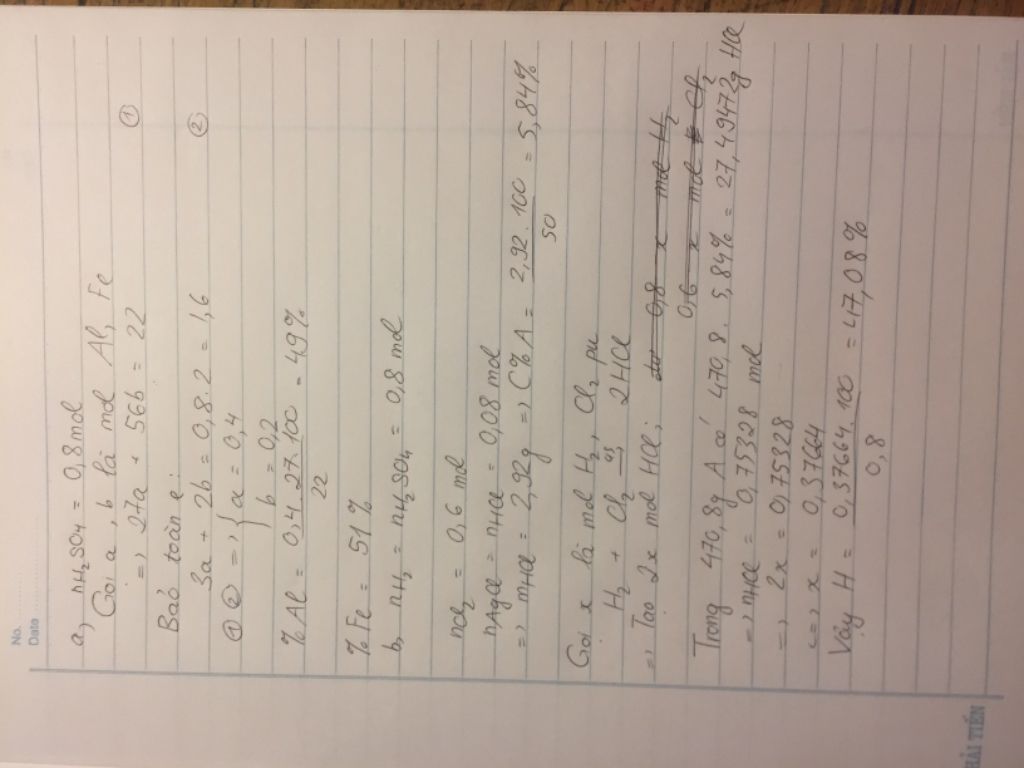 No.
Date
a, nH₂SO₄ = 0,8 mol
Gọi a, b là mol Al, Fe
=> 27a + 56b = 22 ①
Bảo toàn e:
3a + 2b = 0,8.2 = 1,6 ②
① ② => { a = 0,4
b = 0,2
% Al = 0,4.27.100 / 22 = 49%
% Fe = 51%
b, nH₂ = nH₂SO₄ = 0,8 mol
nCl₂ = 0,6 mol
nAgCl = nHCl = 0,08 mol
=> mHCl = 2,92g => C%A = 2,92.100 / 50 = 5,84%
Gọi x là mol H₂, Cl₂ pu
H₂ + Cl₂ →(as) 2HCl
=> Tạo 2x mol HCl; dư 0,8 x mol H₂
0,6 x mol Cl₂
Trong 470,8g A có 470,8. 5,84% = 27,49472g HCl
=> nHCl = 0,75328 mol
=> 2x = 0,75328
<=> x = 0,37664
Vậy H = 0,37664.100 / 0,8 = 47,08%
HẢI TIẾN